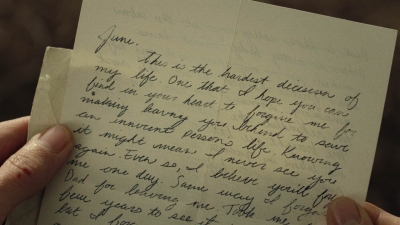 June,
This is the hardest decision of
my life. One that I hope you can
find in your heart to forgive me for
making leaving you behind to save
an innocent persons life. Knowing
it might mean I never see you
again. Even so, I believe you'll
me one day. Same way I
Dad for leaving me. Took me
few years to see it
but I